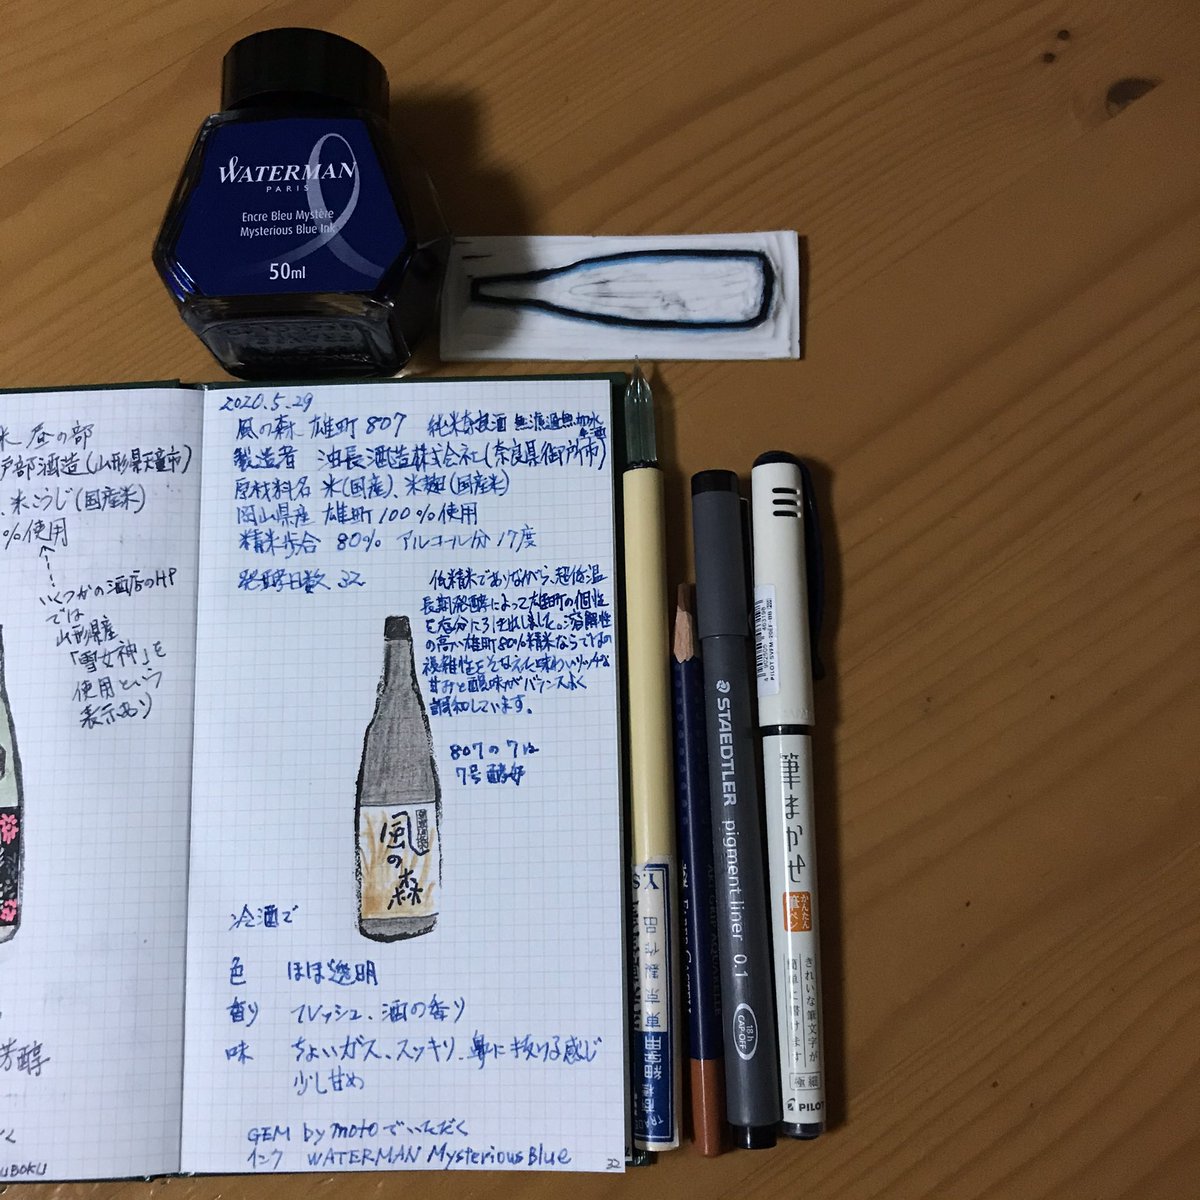 WATERMAN
PARIS
Encre Bleu Mystère
Mysterious Blue Ink
50ml
米 昼の部
戸部酒造(山形県天童市)
、米こうじ(国産米)
%使用
いくつかの酒店のHP
では
山形県産
「雪女神」を
使用という
表示あり
芳醇
2020.5.29
風の森 雄町 807 純米奈良酒 無濾過無加水
製造者 油長酒造株式会社(奈良県御所市)
原材料名 米(国産)、米麹(国産米)
岡山県産 雄町100%使用
精米歩合 80% アルコール分 17度
発酵日数 32
低精米でありながら、超低温
長期発酵によって雄町の個性
を充分に引き出しました。溶解性
の高い雄町80%精米ならではの
複雑性をそなえた味わい リッチな
甘みと酸味がバランスよく
調和しています。
807の7は
7号酵母
風の森
冷酒で
色 ほぼ透明
香り フレッシュ、酒の香り
味 ちょいガス、スッキリ、鼻に抜ける感じ
少し甘め
GEM by motoでいただく
インク WATERMAN Mysterious Blue
32
STAEDTLER pigment liner 0.1
18h
CAP-OFF
筆まかせ
かんたん
筆ペン
きれいな筆文字が
簡単に書けます
極細
PILOT
東京製作品